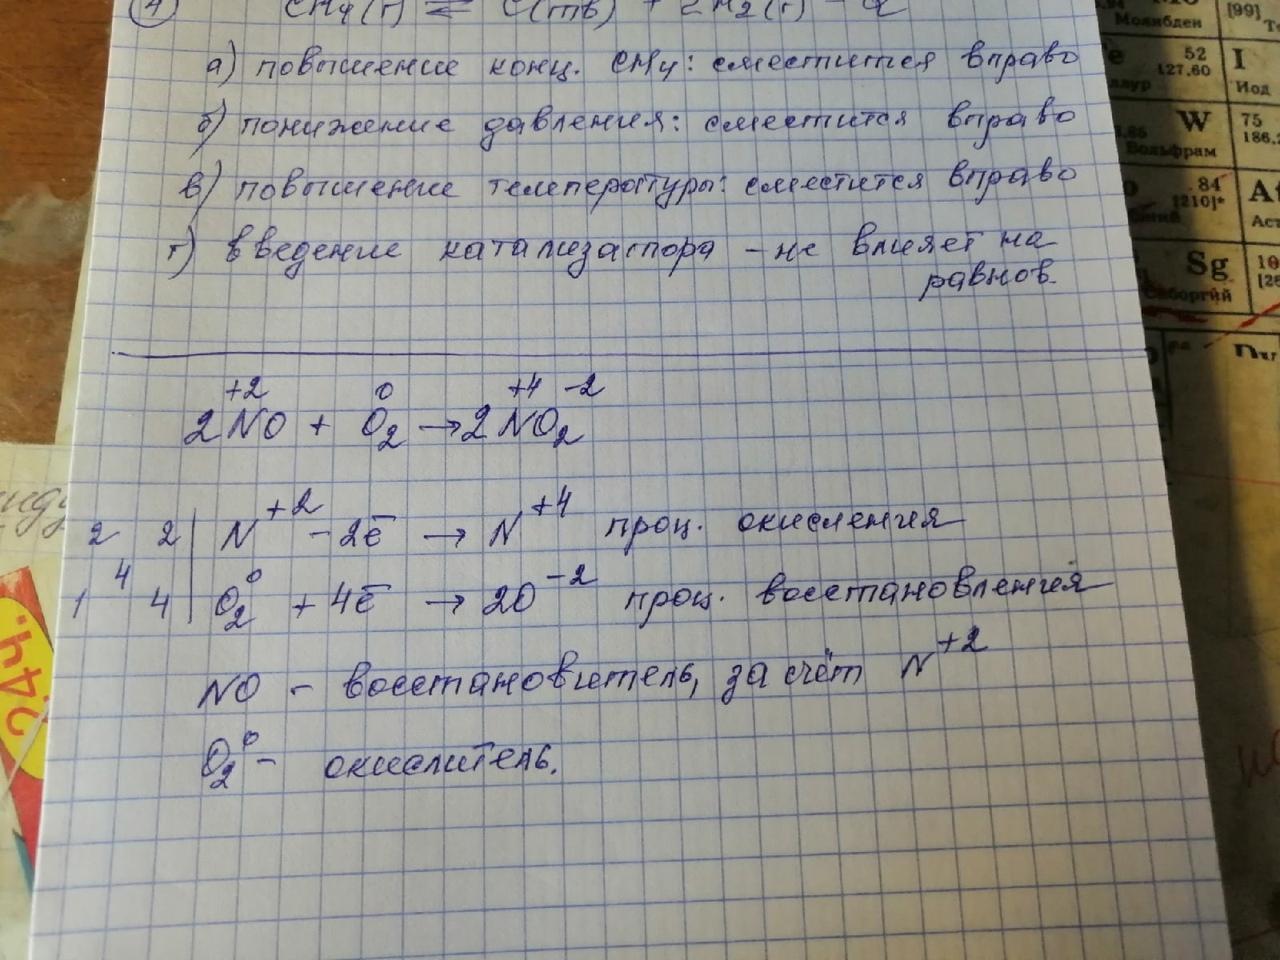 4 CH4(г) ⇄ C(тв) + 2H2(г) - Q
а) повышение конц. CH4: сместится вправо
б) понижение давления: сместится вправо
в) повышение температуры: сместится вправо
г) введение катализатора - не влияет на
равнов.
+2 0 +4 -2
2NO + O2 → 2NO2
2 2 | N+2 - 2ē → N+4 проц. окисления
4
1 4 | O2 0 + 4ē → 2O-2 проц. восстановления
NO - восстановитель, за счёт N+2
O2 0 - окислитель.
Молибден
[99]
52
127,60
I
Иод
W
Вольфрам
75
186,
84
[210]*
At
Аст
Sg
Сиборгий
[26